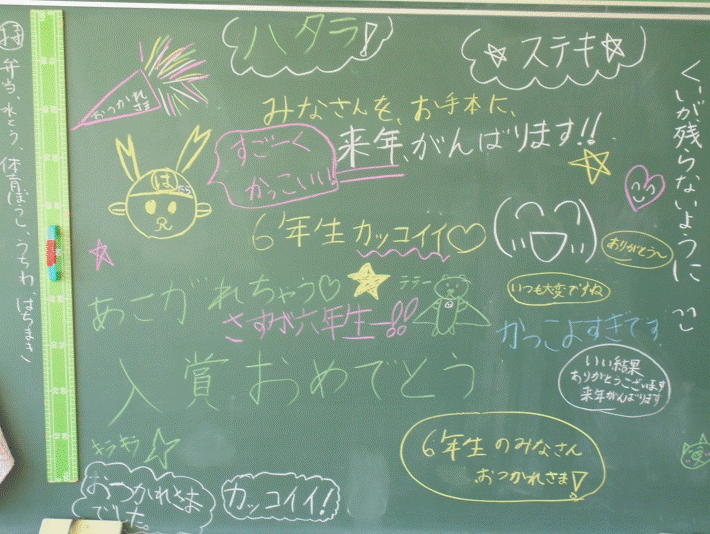 持
弁当、水とう、体育ぼうし、うちわ、はちまき
おつかれ
さま
ハタラ!
ステキ
くいが残らないように
みなさんを、お手本に、
来年、がんばります!!
すごーく
かっこいい!
は
6年生カッコイイ♡
ありがとう〜
いつも大変ですね
あこがれちゃう♡
テテー
さすが六年生ー!!
かっこよすぎです
入賞おめでとう
いい結果
ありがとうございます
来年がんばります
キラキラ
6年生のみなさん
おつかれさま!
おつかれさま
でした。
カッコイイ!